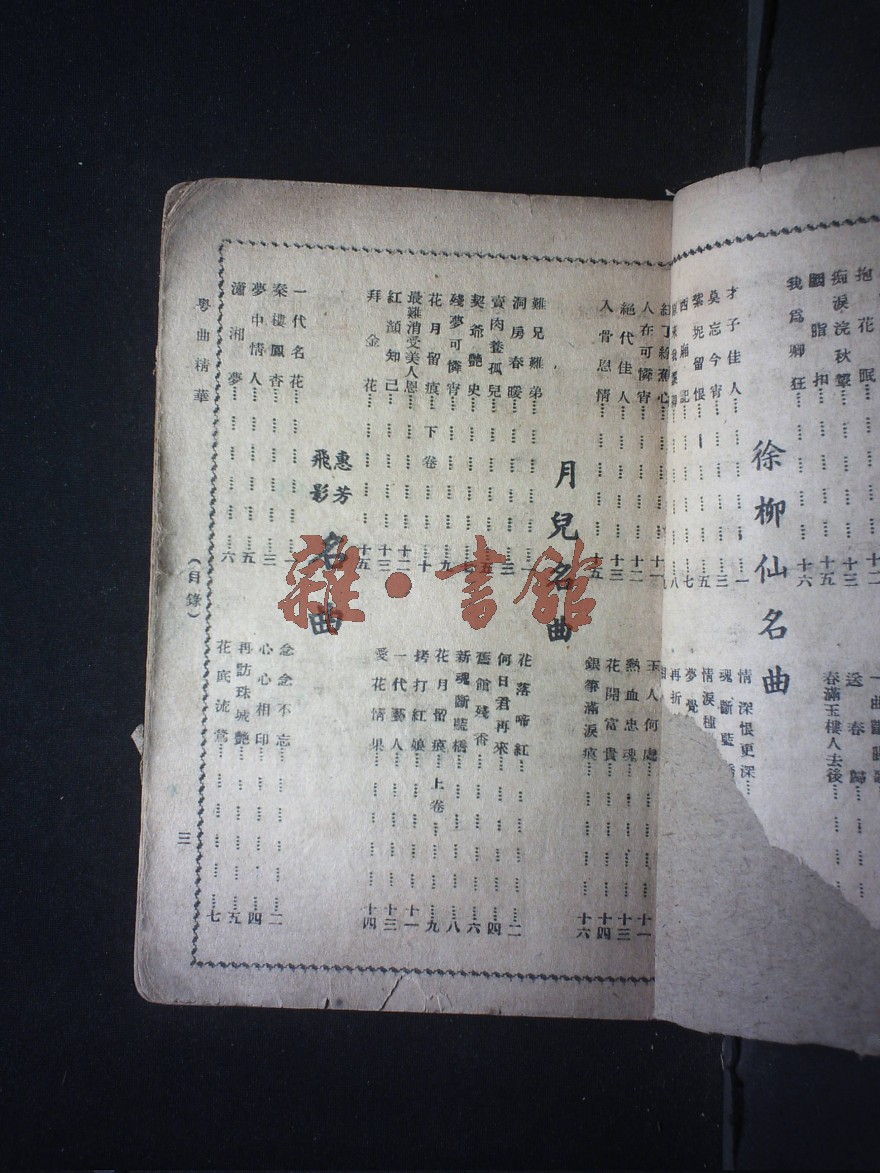 抱花眠
痴淚浣秋顰
胭脂扣……十五
我爲卿狂……十六
送春歸
春滿玉樓人去後
徐柳仙名曲
才子佳人……一
莫忘今宵……三
紫坭留恨……五
西廂記……七
情深恨更深
魂斷藍
情淚種
夢覺
再折
紅了紛蕉心……十一
人在可憐宵……十二
絕代佳人……十三
入骨恩情……十五
玉人何處……十一
熱血忠魂……十三
花開富貴……十四
銀箏滿淚痕……十六
月兒名曲
難兄難弟……一
洞房春暖……三
賣肉養孤兒……五
契爺艷史……七
殘夢可憐宵……九
花月留痕 下卷……十
最難消受美人恩……十二
紅顏知己……十三
拜金花……十五
花落啼紅……二
何日君再來……四
舊館殘香……六
新魂斷藍橋……八
花月留痕 上卷……九
拷打紅娘……十一
一代藝人……十三
愛花情果……十四
惠芳
飛影
名曲
一代名花……一
秦樓鳳杳……三
夢中情人……五
瀟湘夢……六
念念不忘……二
心心相印……四
再訪珠城艷……五
花底流鶯……七
粵曲精華
(目錄)
三
雜·書館